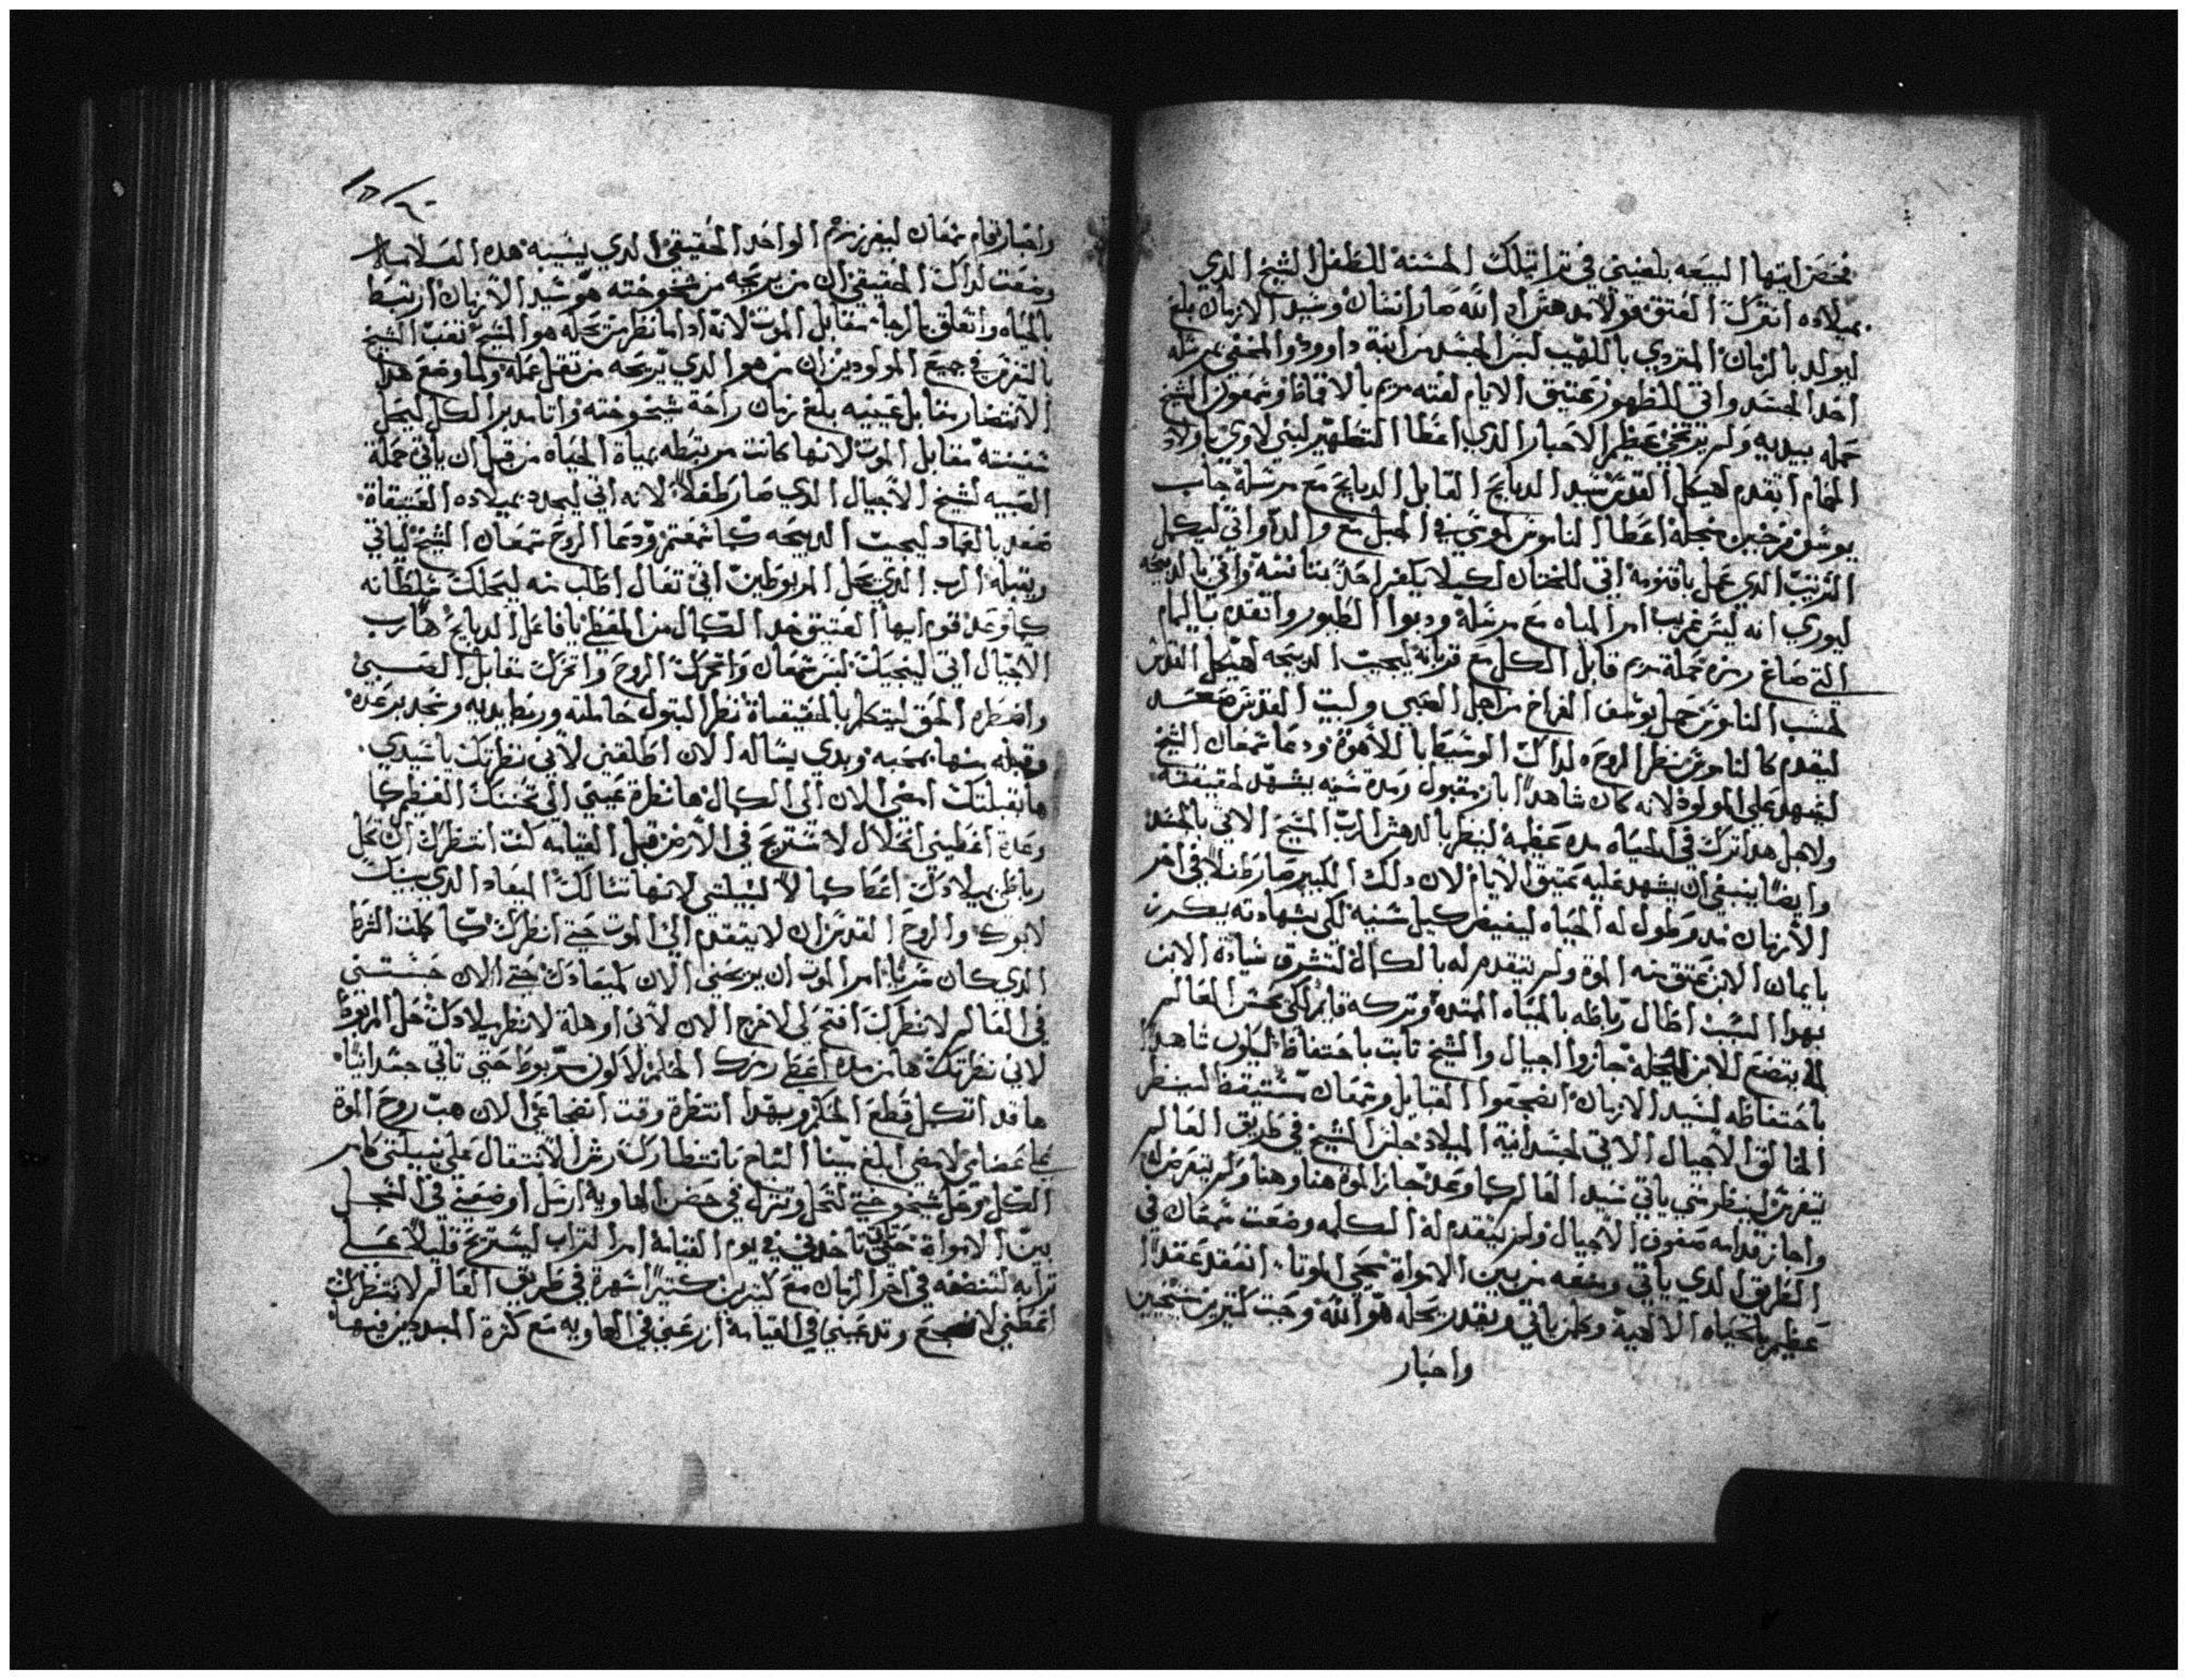 فحضر ايتها البيعه بلغيني في تراتيلك الحسنه للطفل الشيخ الدي
بميلاده اتقرك العتق قولا مدهش اد الله صار انسان وسيد الازمان بلغ
ليولد بالزمان المتردي باللهيب لبس الجسد من ابنة داوود والمخفي بمرسله
اخد الجسد واتي للظهور عتيق الايام لفته مريم بالاقماط وشمعون الشيخ
حمله بيديه ولم يرتخي عظيم الاحبار الدي اعطا التطهير لبني لاوي باولاد
الحمام اتقدم لهيكل القدس سيد الدبايح القابل الدبايح مع مرسلة جاب
يوسف فرخين مجلة اعطا الناموس لموسي في الجبل مع والده واتي ليكمل
الترتيب الدي عمل باقنومه اتي للختان لكيلا يكفر احد بتانسه واتي بالدبيحه
ليوري انه ليس غريب امر المياه مع مرسلة ودبوا الطيور واتقدم باليمام
التي صاغ رمزه حملة مريم قابل الكل مع قربانه ليجيب الدبيحه لهيكل القدس
لحسب الناموس حمل يوسف الفراخ من اجل الصبي ولبيت القدس صعد
ليقدم كالناموس نظر الروح لداك الوسيط باللاهوة ودعا شمعان الشيخ
ليشهد علي المولود لانه كان شاهدا بار مقبول ومدة سنيه يشهد لحقيقته
ولاجل هدا ترك في الحياه مده عظيمه لينظر بالدهش الرب المسيح الاتي بالجسد
وايضا ينبغي ان يشهد عليه عتيق الايام لان دلك الكبير صار طفلا في اخر
الازمان مد وطول له الحياه ليفيض كيل سنيه لكي بشهادته يكرز
بايمان الابن عتق منه الموة ولم يتقدم له بالكمال لتشرق شهادة الابن
بهدا السبب اطال رباطه بالحياه الممتده وتركه قايم لكي بحس العالم
بتضع للابن المحله جازوا اجيال والشيخ تابت باحتفاظ ليكون شاهدا
باحتفاظه لسيد الازمان انضجعوا القبايل وشمعان مستيقظ لينظر
الخالق الاجيال الاتي لجسدانية الميلاد جلس الشيخ في طريق العالم
يتفرس لينظر متي ياتي سيد العالم كما وعد جاز الموة هنا وهنا ولم يتعرض له
واجاز قدامه صفوف الاجيال ولم يتقدم له الكلمه وضعت شمعان في
الطريق الدي ياتي وينعه من بين الامواة محيي الموتا انعقد عقدا
عظيم بالحياه الالهية وكلمن ياتي ويقدر يحله هو الله وجب كتيرين مسيحين
واحبار
واحبار قام شمعان ليفرز رمز الواحد الحقيقي الدي يشبه هده العلامات
وضعت لداك الحقيقي ان من يريحه من شيخوخته هو سيد الازمان ارتبط
بالحياه واتعلق بالرجا مقابل الموت لانه ادا ما نظر من يحله هو المسيح تعب الشيخ
بالتفرس في جميع المولودين ان من هو الدي يريحه من تقل عمله ولما وضع هدا
الانتضار مقابل عينيه بلغ زمان راحة شيخوخته واتا مدبر الكل ليحل
سفينته مقابل الموت لانها كانت مرتبطه بمياة الحياه من قبل ان ياتي حملة
الصبيه لشيخ الاجيال الدي صار طفلا لانه اتي ليجدد بميلاده العتيقاة
صعد بالعماد ليجيب الدبيحه كما سمعتم ودعا الروح شمعان الشيخ لياتي
ويقبله الرب الدي يحل المربوطين اتي تعال اطلب منه ليحلك سلطانه
كما وعد قوم ايها العتيق خد الكمال من المعطي يا فاعل الدبايح ها رب
الاجيال اتي لينجيك لبس شمعان واتحرك الروح واتحرك مقابل الصبي
واضطره الحق ليتكلم بالحقيقاة نظر البتول حاملته وربط يديه وسجد برعده
وقبله منها بمحبه وبدي يساله الان اطلقني لاني نظرتك يا سيدي
ها تقبلتك امضي الان الي الكمال ها نظرة عيني الي تحننك العظيم كما
وعدة اعطيني انحلال لاستريح في الارض قبل القيامه كنت انتظرك ان تحل
رباطي بميلادك اعطا كمالا لسبيلتي لانها تتالك الميعاد الدي بينك
لابوك والروح القدس ان لا يتقدم الي الموت حتي انظرك كما كملت الشرط
الدي كان سريا امر الموت ان يريحني الان كميعادك حتي الان حبستني
في العالم لانظرك افتح لي لاخرج الان لاني اوهلة لانظر ميلادك حل المربوط
لاني نظرتك ها من مده اعطي رمزك الحلم لاكون مربوط حتي تاتي جسدانيا
ها قد اتكمل قطع الحكم وبهدا انتظرة وقت انضجاعي الان هب روح الموة
علي عصاتي لامضي ابلغ مينا التياح بانتظارك رش الانتقال علي سبيلتي كامر
الكل وحل شيخوختي لتحل وتنزل في حضن الهاوية ارسل اوضعني في السجل
بين الامواة حتي تاخدني في يوم القيامة امر التراب ليستريح قليلا علي
ترابه لتنضفه في اخر الزمان مع كتيرين كتير اشهرة في طريق العالم لانتظرك
اعطني لانضجع وتدعيني في القيامة ازرعني في الهاويه مع كثرة المبددين فيها